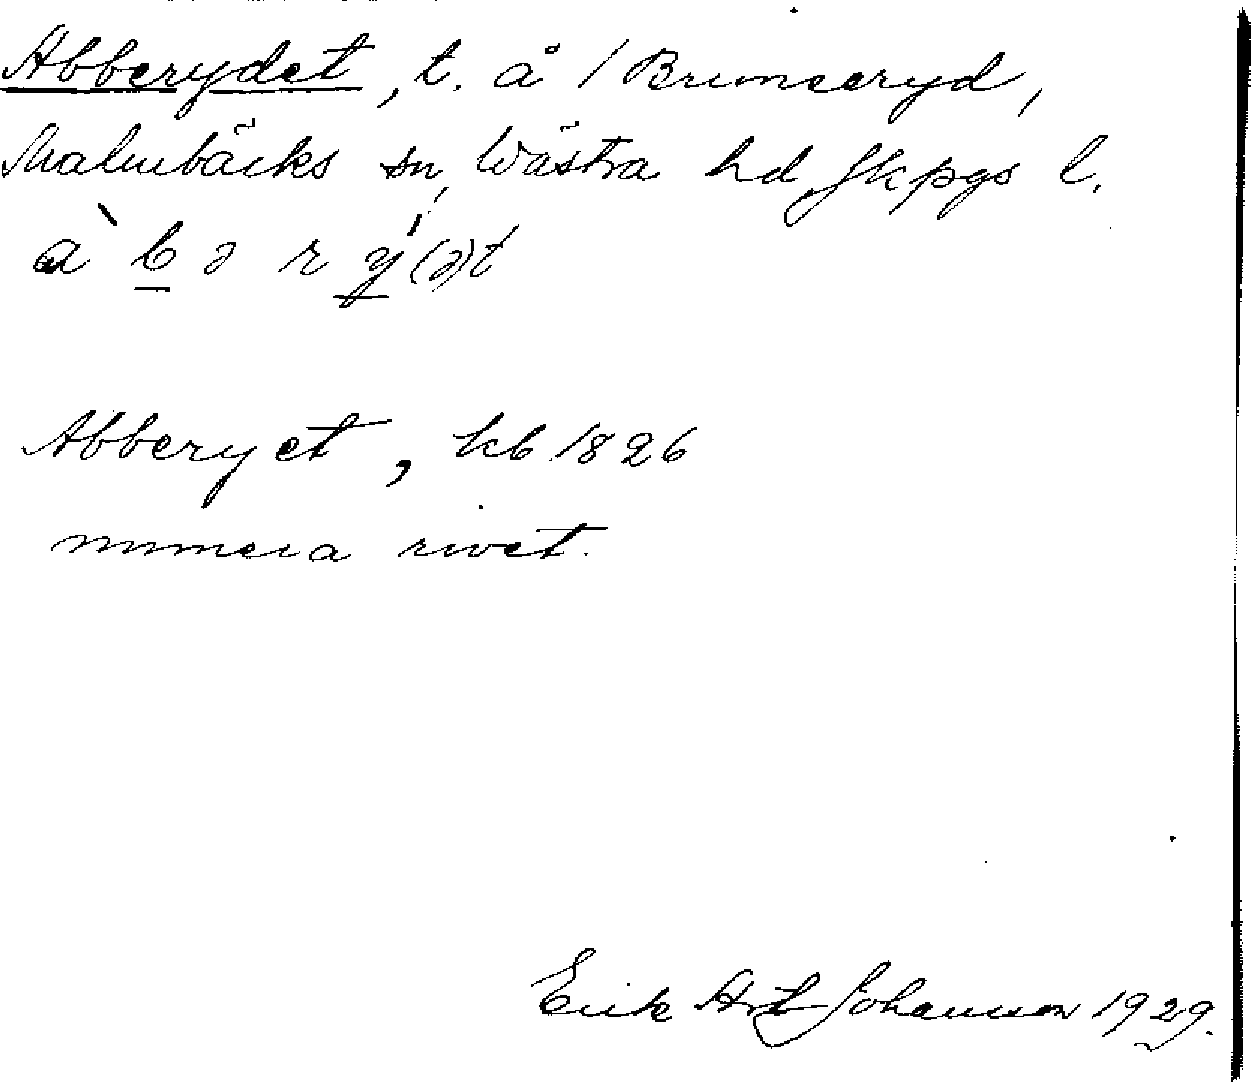 Abberydet, t. å / Brunseryd,
Malmbäcks sn, Västra hd, Jkpgs l.
à b ə r ý(ə)t
Abberyet, kb 1826
numera rivet.
Erik Johansson 1929.